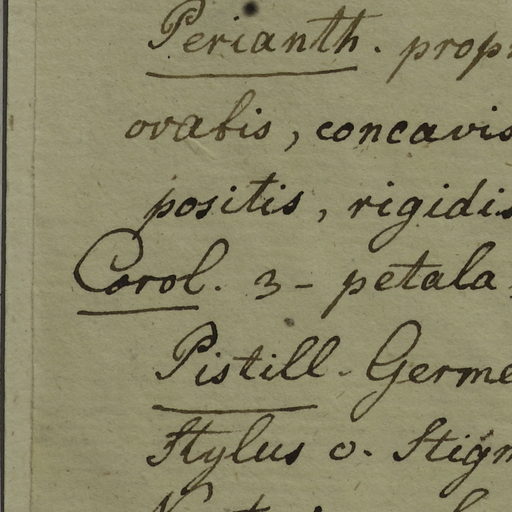 Perianth. prop
ovatis, concavis
positis, rigidis
Corol. 3-petala
Pistill. Germe
Stylus o. Stig